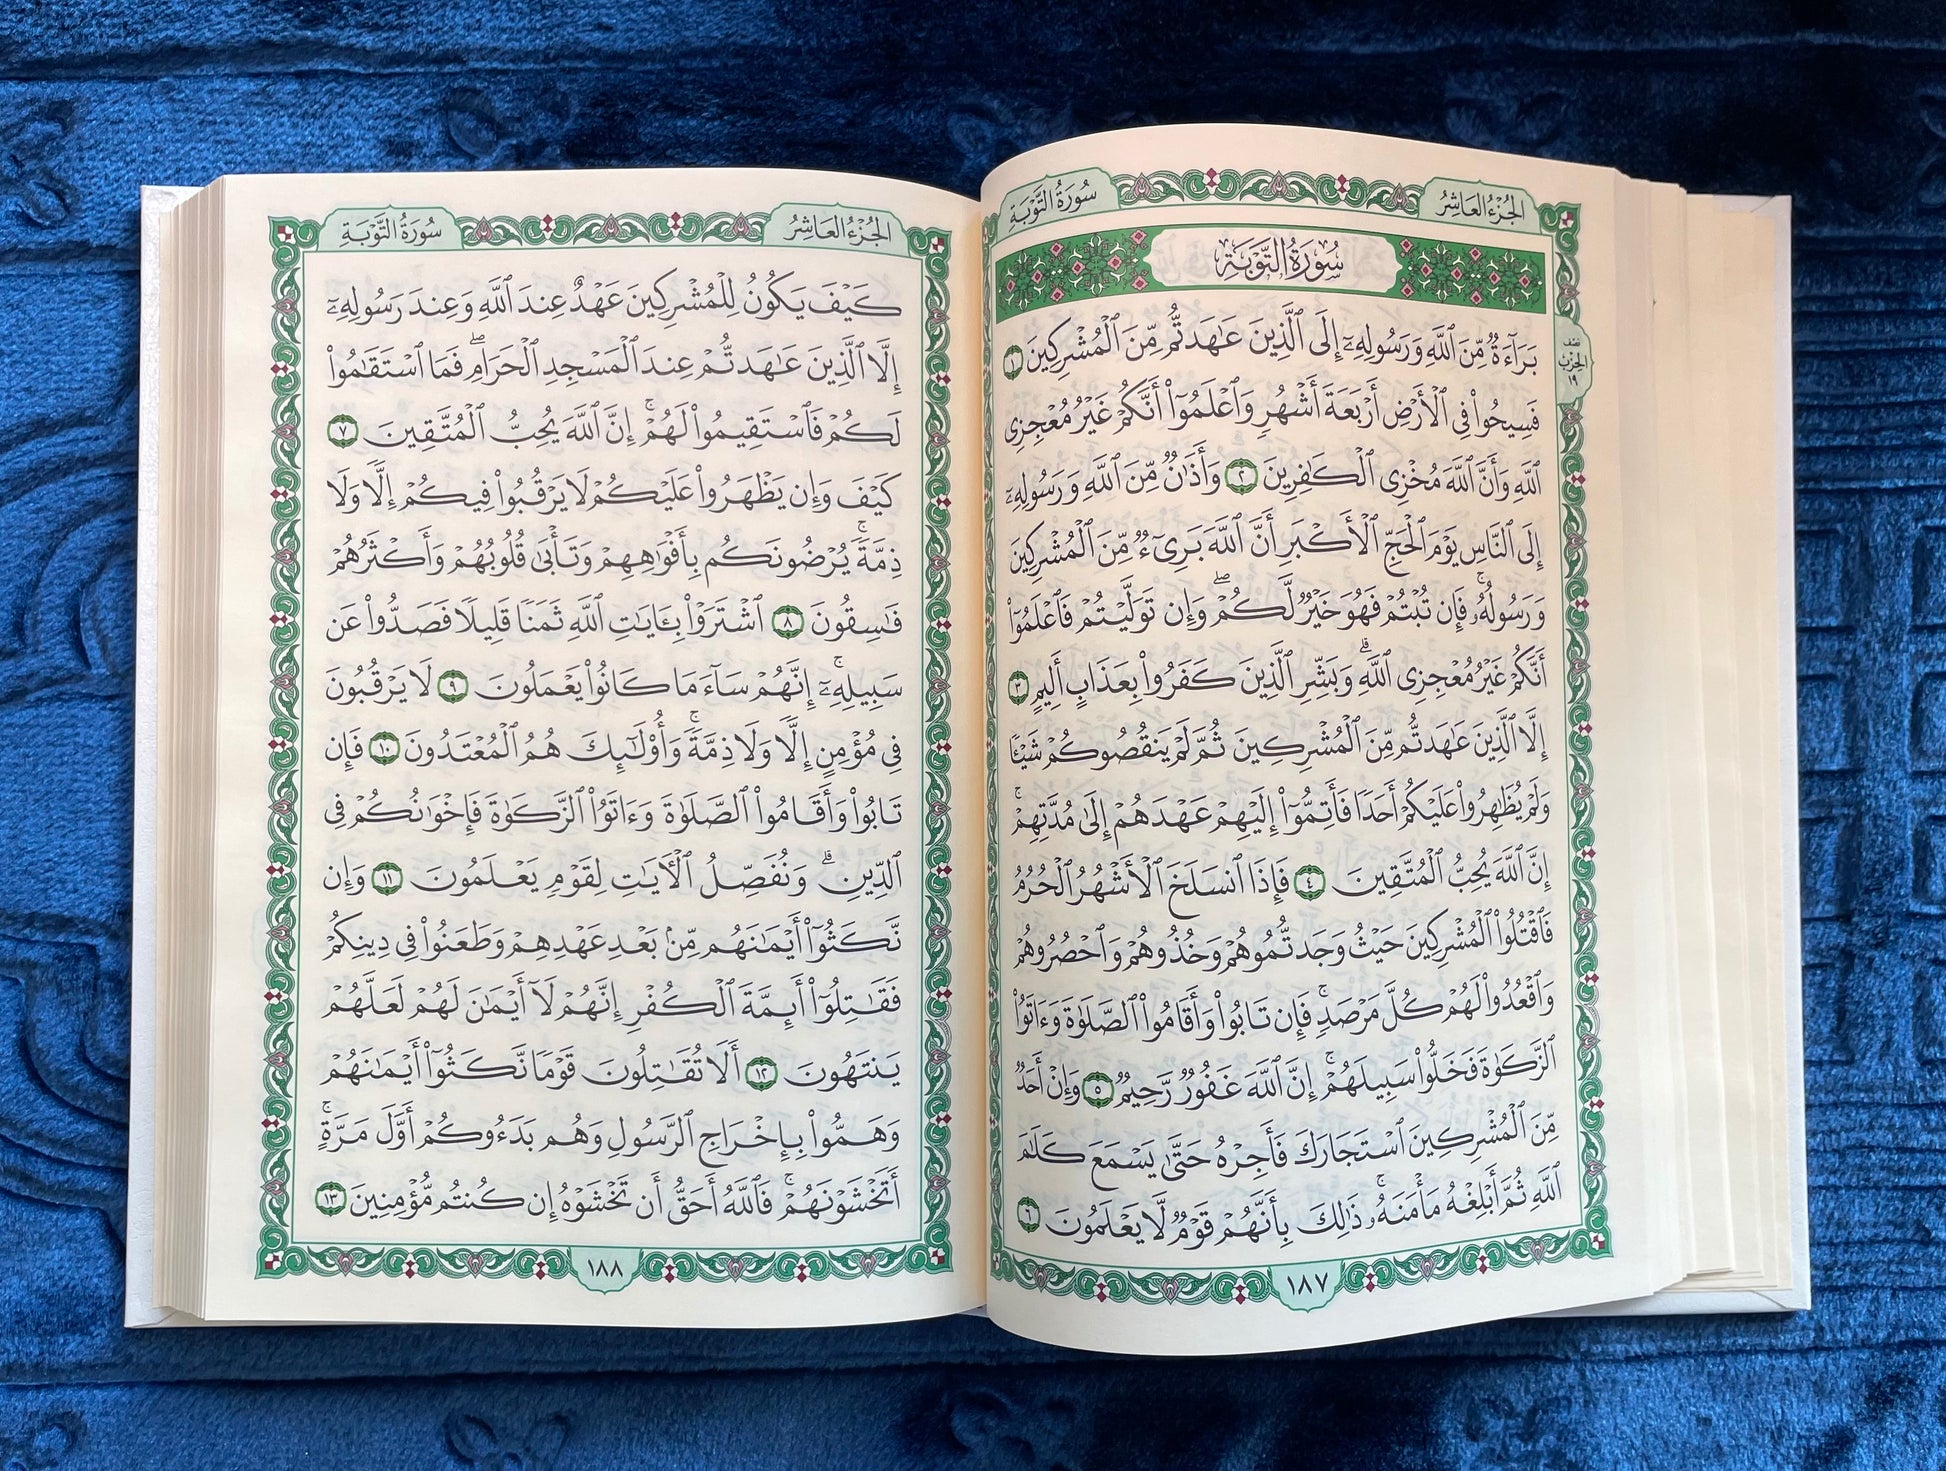 سُورَةُ التَّوْبَةِ
الجُزْءُ العَاشِرُ
سُورَةُ التَّوْبَةِ
بَرَآءَةٌ مِّنَ ٱللَّهِ وَرَسُولِهِۦٓ إِلَى ٱلَّذِينَ عَٰهَدتُّم مِّنَ ٱلْمُشْرِكِينَ ١
نصف
الحزب
١٩
فَسِيحُوا۟ فِى ٱلْأَرْضِ أَرْبَعَةَ أَشْهُرٍ وَٱعْلَمُوٓا۟ أَنَّكُمْ غَيْرُ مُعْجِزِى
ٱللَّهِ وَأَنَّ ٱللَّهَ مُخْزِى ٱلْكَٰفِرِينَ ٢ وَأَذَٰنٌ مِّنَ ٱللَّهِ وَرَسُولِهِۦٓ
إِلَى ٱلنَّاسِ يَوْمَ ٱلْحَجِّ ٱلْأَكْبَرِ أَنَّ ٱللَّهَ بَرِىٓءٌ مِّنَ ٱلْمُشْرِكِينَ
وَرَسُولُهُۥ ۚ فَإِن تُبْتُمْ فَهُوَ خَيْرٌ لَّكُمْ ۖ وَإِن تَوَلَّيْتُمْ فَٱعْلَمُوٓا۟
أَنَّكُمْ غَيْرُ مُعْجِزِى ٱللَّهِ ۗ وَبَشِّرِ ٱلَّذِينَ كَفَرُوا۟ بِعَذَابٍ أَلِيمٍ ٣
إِلَّا ٱلَّذِينَ عَٰهَدتُّم مِّنَ ٱلْمُشْرِكِينَ ثُمَّ لَمْ يَنقُصُوكُمْ شَيْـًٔا
وَلَمْ يُظَٰهِرُوا۟ عَلَيْكُمْ أَحَدًا فَأَتِمُّوٓا۟ إِلَيْهِمْ عَهْدَهُمْ إِلَىٰ مُدَّتِهِمْ ۚ
إِنَّ ٱللَّهَ يُحِبُّ ٱلْمُتَّقِينَ ٤ فَإِذَا ٱنسَلَخَ ٱلْأَشْهُرُ ٱلْحُرُمُ
فَٱقْتُلُوا۟ ٱلْمُشْرِكِينَ حَيْثُ وَجَدتُّمُوهُمْ وَخُذُوهُمْ وَٱحْصُرُوهُمْ
وَٱقْعُدُوا۟ لَهُمْ كُلَّ مَرْصَدٍ ۚ فَإِن تَابُوا۟ وَأَقَامُوا۟ ٱلصَّلَوٰةَ وَءَاتَوُا۟
ٱلزَّكَوٰةَ فَخَلُّوا۟ سَبِيلَهُمْ ۚ إِنَّ ٱللَّهَ غَفُورٌ رَّحِيمٌ ٥ وَإِنْ أَحَدٌ
مِّنَ ٱلْمُشْرِكِينَ ٱسْتَجَارَكَ فَأَجِرْهُ حَتَّىٰ يَسْمَعَ كَلَٰمَ
ٱللَّهِ ثُمَّ أَبْلِغْهُ مَأْمَنَهُۥ ۚ ذَٰلِكَ بِأَنَّهُمْ قَوْمٌ لَّا يَعْلَمُونَ ٦
١٨٧
الجُزْءُ العَاشِرُ
سُورَةُ التَّوْبَةِ
كَيْفَ يَكُونُ لِلْمُشْرِكِينَ عَهْدٌ عِندَ ٱللَّهِ وَعِندَ رَسُولِهِۦٓ
إِلَّا ٱلَّذِينَ عَٰهَدتُّمْ عِندَ ٱلْمَسْجِدِ ٱلْحَرَامِ ۖ فَمَا ٱسْتَقَٰمُوا۟
لَكُمْ فَٱسْتَقِيمُوا۟ لَهُمْ ۚ إِنَّ ٱللَّهَ يُحِبُّ ٱلْمُتَّقِينَ ٧
كَيْفَ وَإِن يَظْهَرُوا۟ عَلَيْكُمْ لَا يَرْقُبُوا۟ فِيكُمْ إِلًّا وَلَا
ذِمَّةً ۚ يُرْضُونَكُم بِأَفْوَٰهِهِمْ وَتَأْبَىٰ قُلُوبُهُمْ وَأَكْثَرُهُمْ
فَٰسِقُونَ ٨ ٱشْتَرَوْا۟ بِـَٔايَٰتِ ٱللَّهِ ثَمَنًا قَلِيلًا فَصَدُّوا۟ عَن
سَبِيلِهِۦٓ ۚ إِنَّهُمْ سَآءَ مَا كَانُوا۟ يَعْمَلُونَ ٩ لَا يَرْقُبُونَ
فِى مُؤْمِنٍ إِلًّا وَلَا ذِمَّةً ۚ وَأُو۟لَٰٓئِكَ هُمُ ٱلْمُعْتَدُونَ ١٠ فَإِن
تَابُوا۟ وَأَقَامُوا۟ ٱلصَّلَوٰةَ وَءَاتَوُا۟ ٱلزَّكَوٰةَ فَإِخْوَٰنُكُمْ فِى
ٱلدِّينِ ۗ وَنُفَصِّلُ ٱلْـَٔايَٰتِ لِقَوْمٍ يَعْلَمُونَ ١١ وَإِن
نَّكَثُوٓا۟ أَيْمَٰنَهُم مِّنۢ بَعْدِ عَهْدِهِمْ وَطَعَنُوا۟ فِى دِينِكُمْ
فَقَٰتِلُوٓا۟ أَئِمَّةَ ٱلْكُفْرِ ۙ إِنَّهُمْ لَآ أَيْمَٰنَ لَهُمْ لَعَلَّهُمْ
يَنتَهُونَ ١٢ أَلَا تُقَٰتِلُونَ قَوْمًا نَّكَثُوٓا۟ أَيْمَٰنَهُمْ
وَهَمُّوا۟ بِإِخْرَاجِ ٱلرَّسُولِ وَهُم بَدَءُوكُمْ أَوَّلَ مَرَّةٍ ۚ
أَتَخْشَوْنَهُمْ ۚ فَٱللَّهُ أَحَقُّ أَن تَخْشَوْهُ إِن كُنتُم مُّؤْمِنِينَ ١٣
١٨٨